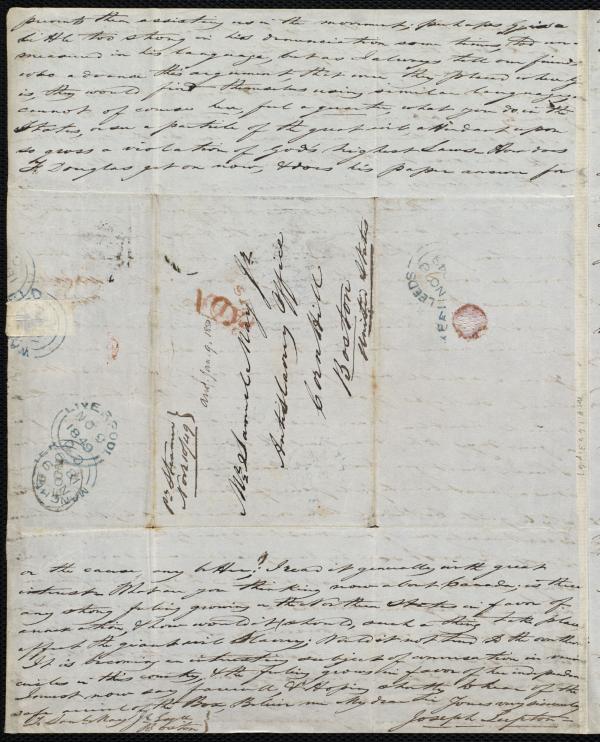 prompts them assisting us in the movement; perhaps
little too strong in his denunciation some times, too
measured in his language, but as I always tell our friends
who advance this argument that were they placed where
is they would find themselves using similar language
cannot of course here, feel a quarter, what you do in the
States, or see a particle of the great evil attendant upon
so gross a violation of God's highest Laws. How does
F. Douglas get on now, & does his paper answer for
Mr. Samuel May Jr.
Anti Slavery Office
Cornhill
Boston
United States
ansd. Jan 9. 1850
pr. Steamer
Nov 10/49
LEEDS
LIVERPOOL
NO 9
1849
or the cause, any better? I read it generally, with great
interest. What are you thinking now about Canada, is there
any strong feeling growing in the Northern States in favor of
annexation, & how would it stand, such a thing took place,
affect the great evil Slavery; Would it not tend to
It is becoming an interesting subject of conversation in some
circles in this country, & the feeling grows in favor of her
I must now say farewell, & Hoping shortly to hear of the
safe arrival of the Box, Believe me My dear Sir Yours very sincerely
Joseph Lupton
To Saml. May Jr. Esqre
Boston